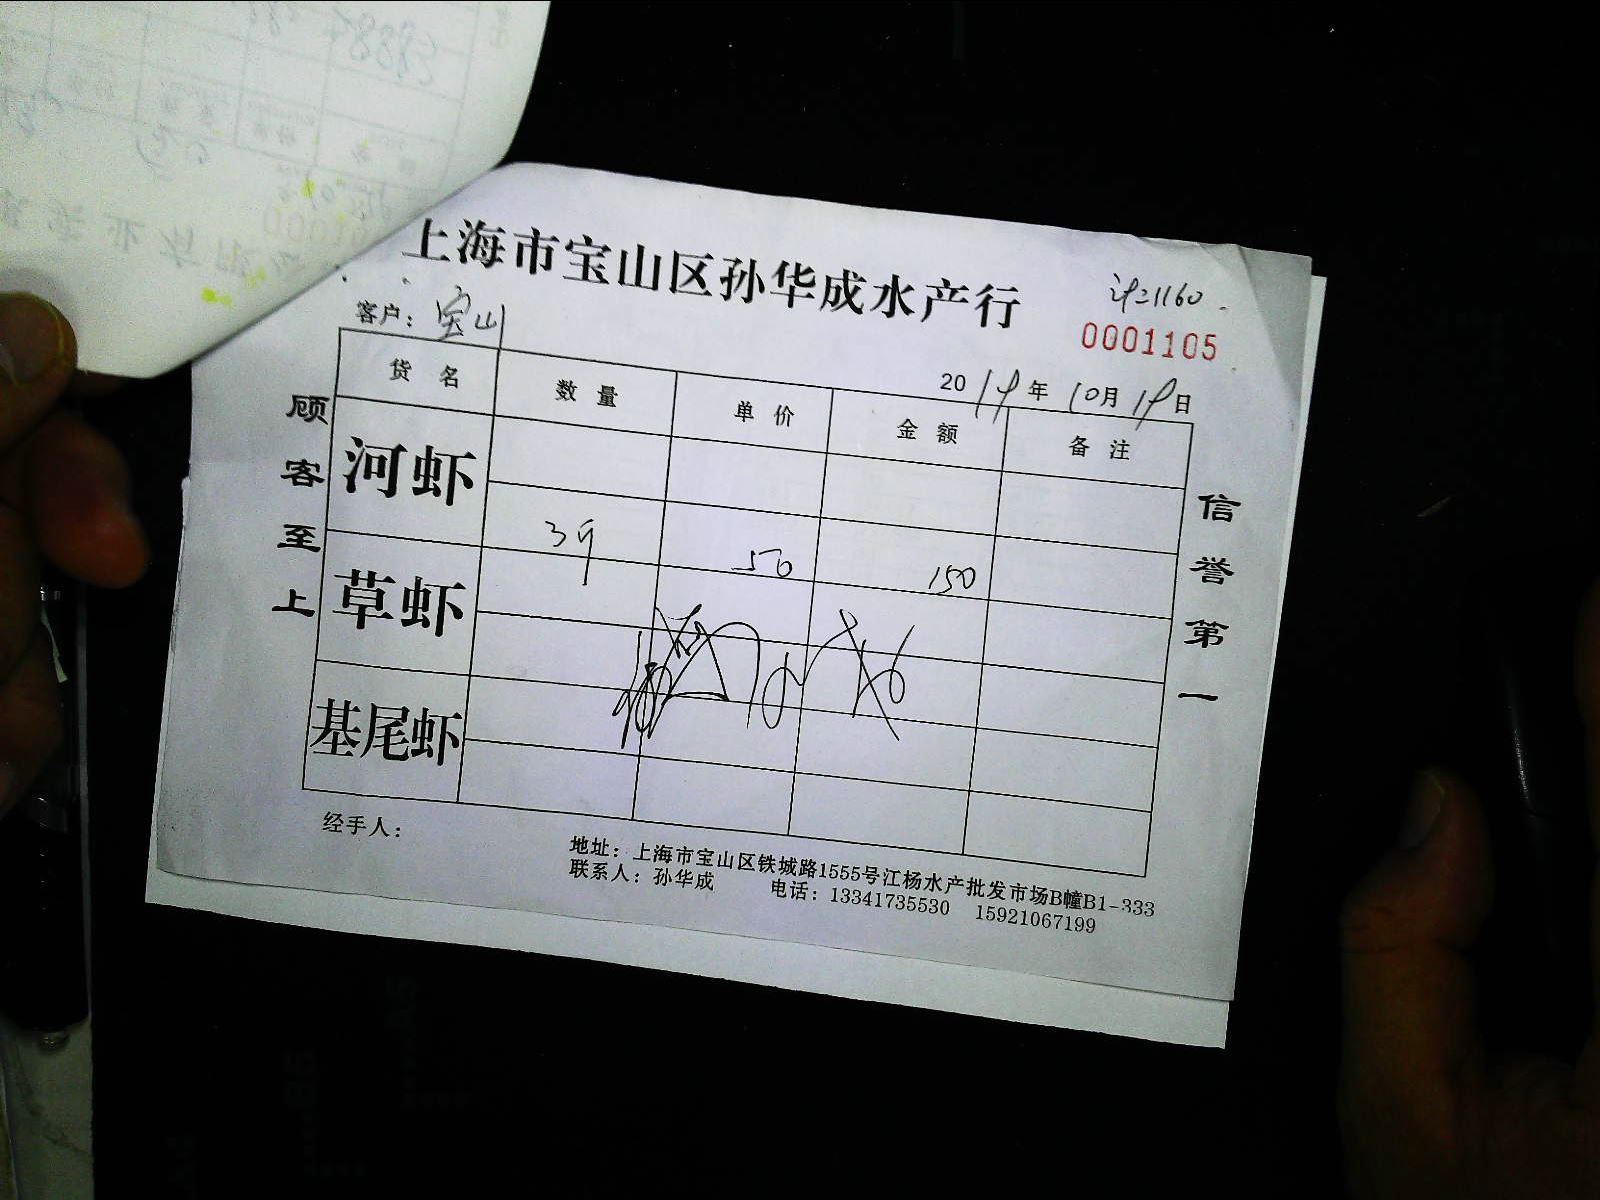 上海市宝山区孙华成水产行
0001105
客户：宝山
2019年10月19日
货名 数量 单价 金额 备注
河虾
3斤 50 150
草虾
基尾虾
顾客至上
信誉第一
经手人：
地址：上海市宝山区铁城路1555号江杨水产批发市场B幢B1-333
联系人：孙华成 电话：13341735530 15921067199